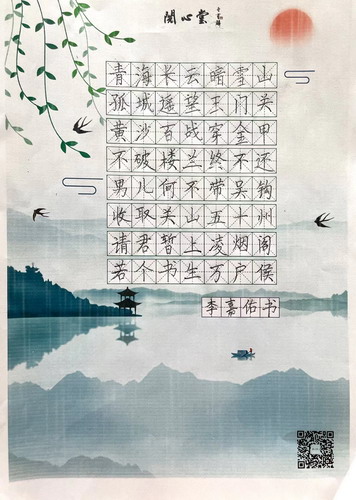 開心堂
青海长云暗雪山
孤城遥望玉门关
黄沙百战穿金甲
不破楼兰终不还
男儿何不带吴钩
收取关山五十州
请君暂上凌烟阁
若个书生万户侯
李嘉佑书